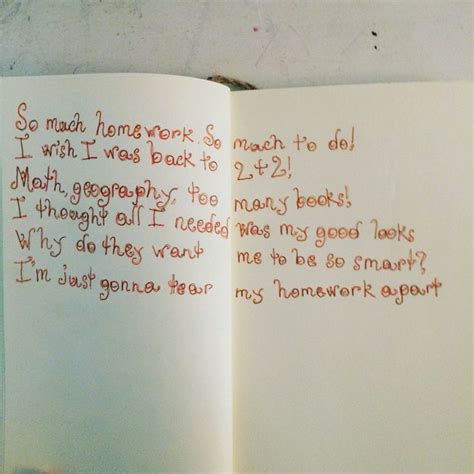 So much homework. So much to do!
I wish I was back to 2+2!
Math, geography, too many books!
I thought all I needed was my good looks
Why do they want me to be so smart?
I'm just gonna tear my homework apart